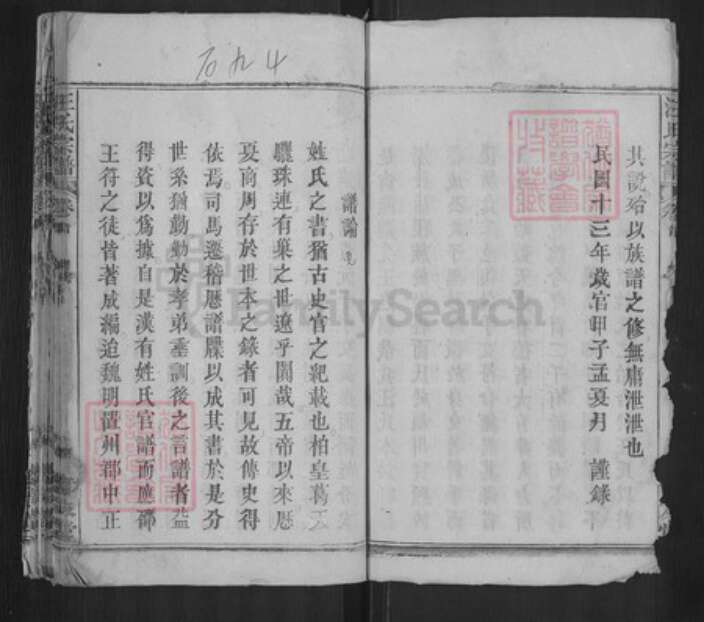 其說殆以族譜之修無庸泄泄也
民國十三年歲宮甲子孟夏月 謹錄
譜論
姓氏之書猶古史官之紀載也柏皇葛天
驪珠連有巢之世遼乎闊哉五帝以來歷
夏商周存於世本之錄者可見故傳史得
依焉司馬遷稽歷譜牒以成其書於是分
世系猶勤勤於孝弟垂訓後之言譜者益
得資以爲據自是漢有姓氏官譜而應邵
王符之徒皆著成編迨魏明置州郡中正
汪氏宗譜
FamilySearch